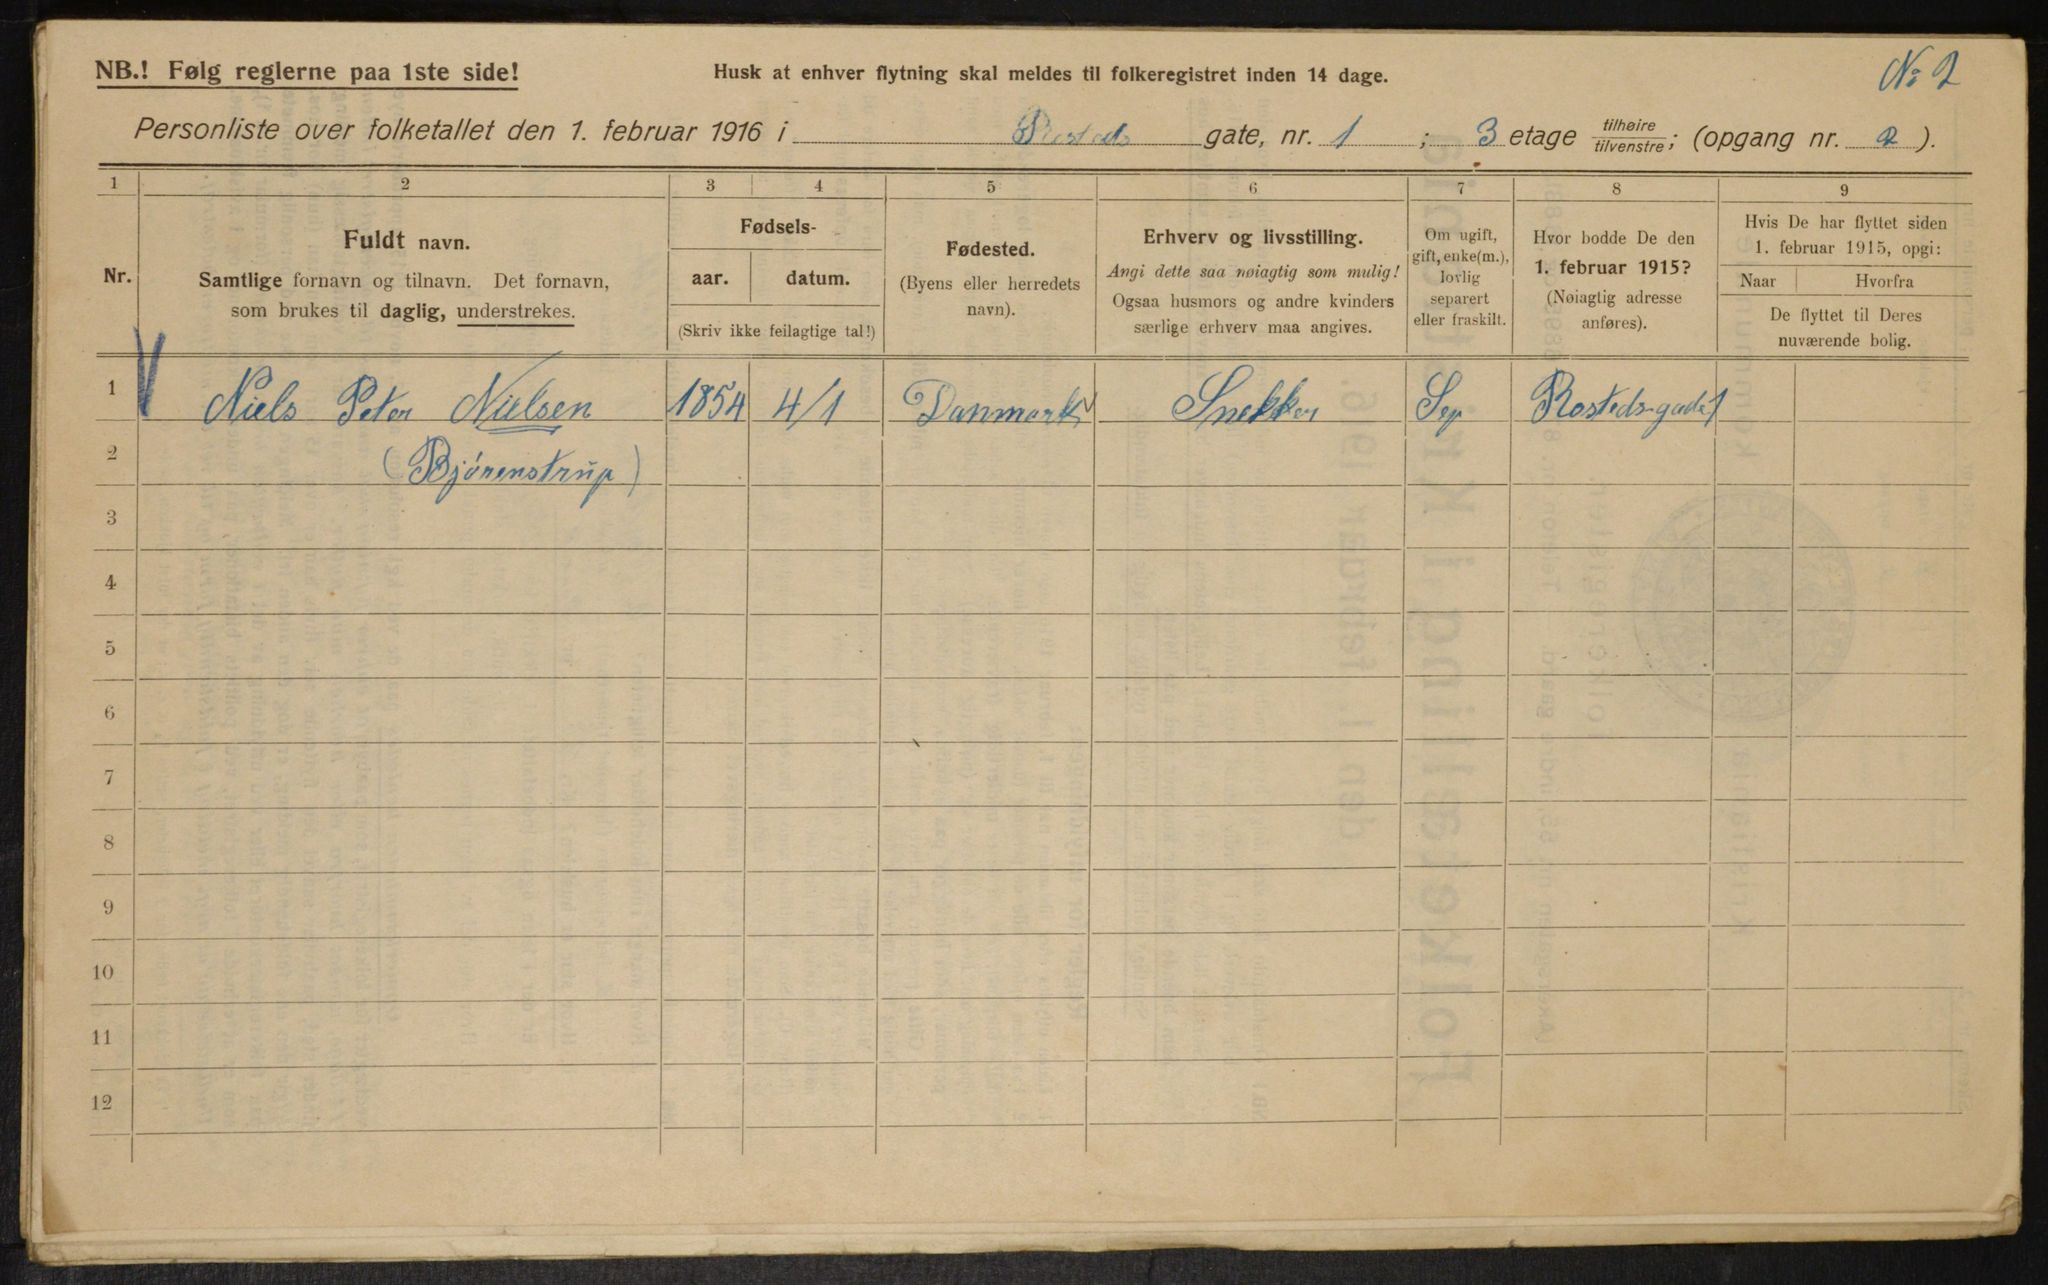 NB.! Følg reglerne paa 1ste side!
Husk at enhver flytning skal meldes til folkeregistret inden 14 dage.
No 2
Personliste over folketallet den 1. februar 1916 i Rosteds gate, nr. 1 ; 3 etage tilhøire/tilvenstre; (opgang nr. 2 ).
1 2 3 4 5 6 7 8 9
Nr.
Fuldt navn.
Samtlige fornavn og tilnavn. Det fornavn,
som brukes til daglig, understrekes.
Fødsels-
aar. datum.
(Skriv ikke feilagtige tal!)
Fødested.
(Byens eller herredets
navn).
Erhverv og livsstilling.
Angi dette saa nøiagtig som mulig!
Ogsaa husmors og andre kvinders
særlige erhverv maa angives.
Om ugift,
gift, enke(m.),
lovlig
separert
eller fraskilt.
Hvor bodde De den
1. februar 1915?
(Nøiagtig adresse
anføres).
Hvis De har flyttet siden
1. februar 1915, opgi:
Naar Hvorfra
De flyttet til Deres
nuværende bolig.
1 Niels Peter Nielsen 1854 4/1 Danmark Snekker Sep Rostedsgade 1
2 (Bjørenstrup)
3
4
5
6
7
8
9
10
11
12